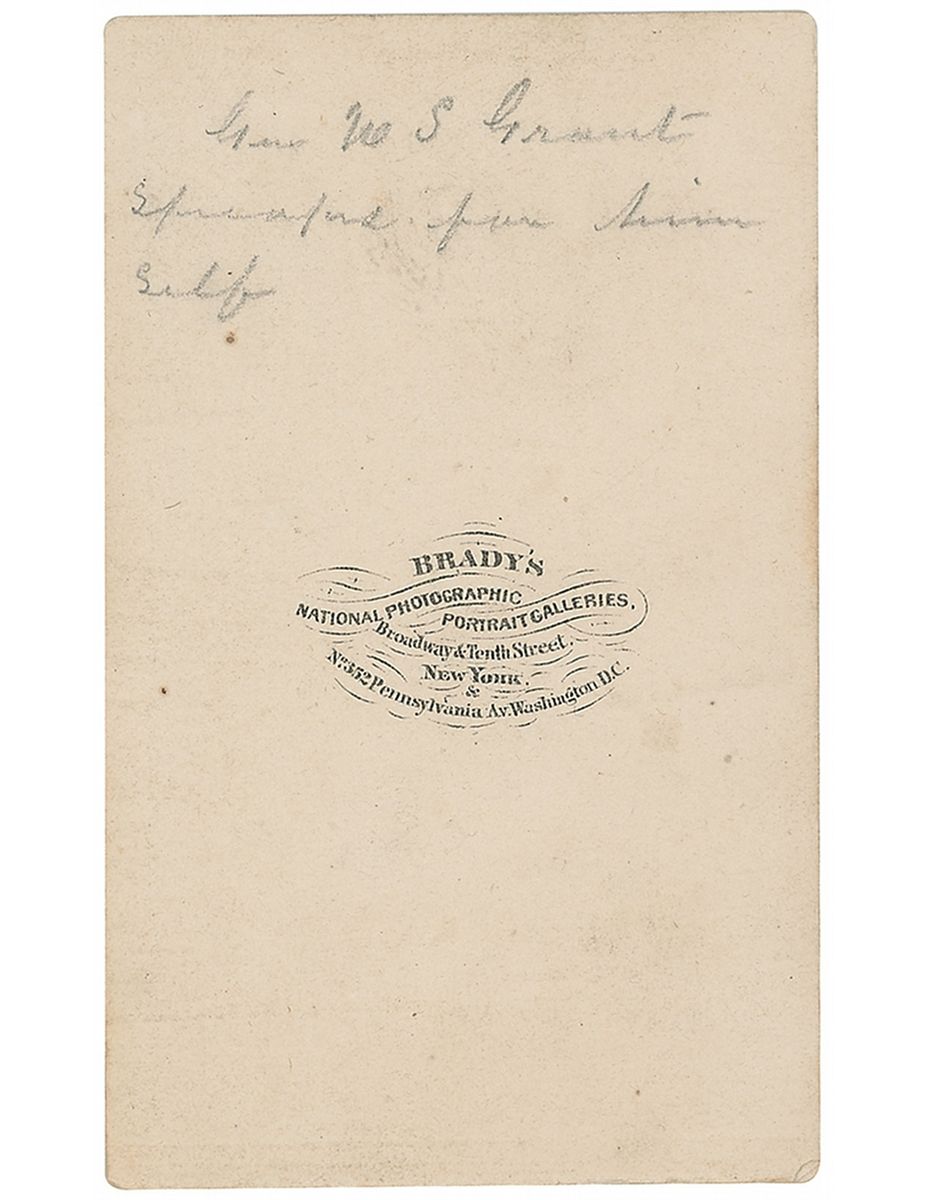 Gen U S Grant
Speaks for him
Self
BRADY'S
NATIONAL PHOTOGRAPHIC PORTRAIT GALLERIES,
Broadway & Tenth Street.
NEW YORK.
&
No. 352 Pennsylvania Av. Washington D.C.